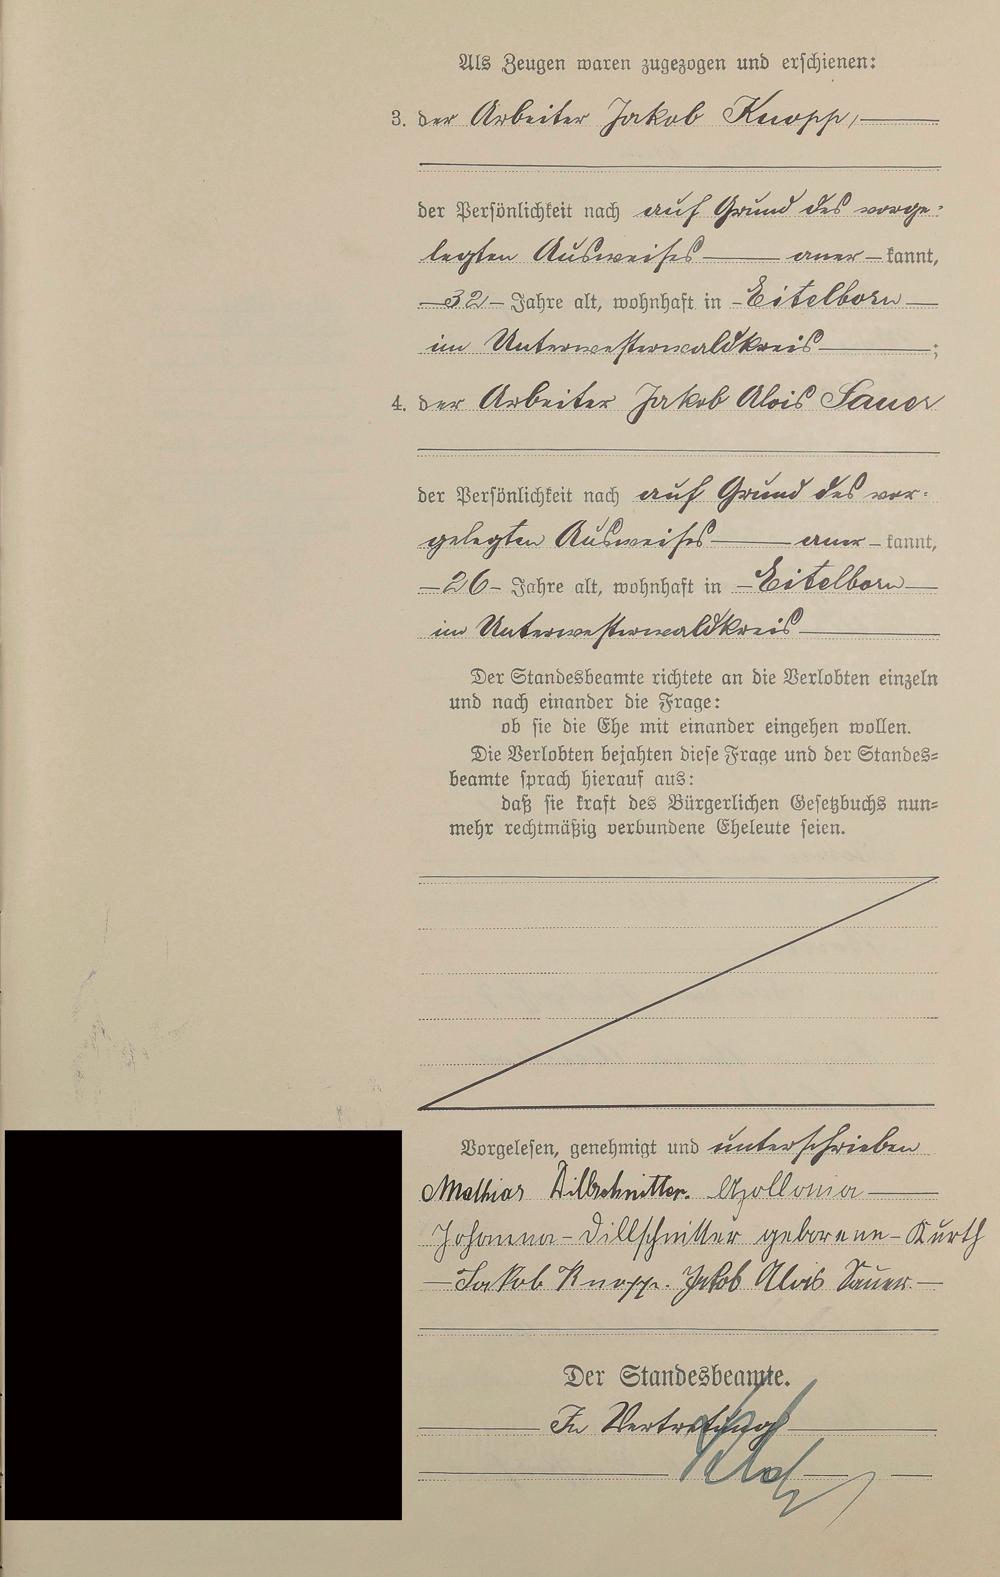 Als Zeugen waren zugezogen und erschienen:
3. der Arbeiter Jakob Knopp,
der Persönlichkeit nach auf Grund des vorge:
legten Ausweises aner-kannt,
32 Jahre alt, wohnhaft in Eitelborn
im Unterwesterwaldkreis;
4. der Arbeiter Jakob Alois Sauer
der Persönlichkeit nach auf Grund des vor-
gelegten Ausweises aner-kannt,
26 Jahre alt, wohnhaft in Eitelborn
im Unterwesterwaldkreis
Der Standesbeamte richtete an die Verlobten einzeln
und nach einander die Frage:
ob sie die Ehe mit einander eingehen wollen.
Die Verlobten bejahten diese Frage und der Standes-
beamte sprach hierauf aus:
daß sie kraft des Bürgerlichen Gesetzbuchs nun-
mehr rechtmäßig verbundene Eheleute seien.
Vorgelesen, genehmigt und unterschrieben
Mathias Dillschnitter. Apollonia
Johanna Dillschnitter geborene Kurth
Jakob Knopp. Jakob Alois Sauer.
Der Standesbeamte.
In Vertretung